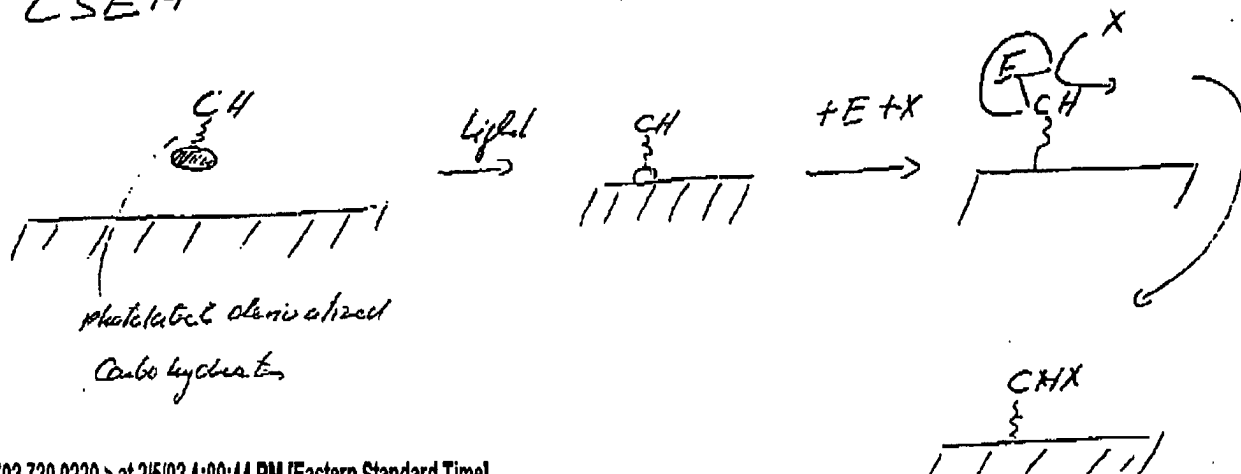 CSEM
CH
Light
CH
+E +X
E
X
CH
photolabel derivatized
Carbohydrates
CHX
703 720 0220 > at 2/5/03 4:00:44 PM [Eastern Standard Time]